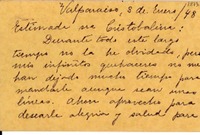 Valparaíso, 3 de Enero/48
Estimada
Durante todo este largo
tiempo no la he olvidado, pero
mis infinitos quehaceres no me
han dejado mucho tiempo para
mandarle aunque sean unas
líneas. Ahora aprovecho para
desearle alegrías y salud para